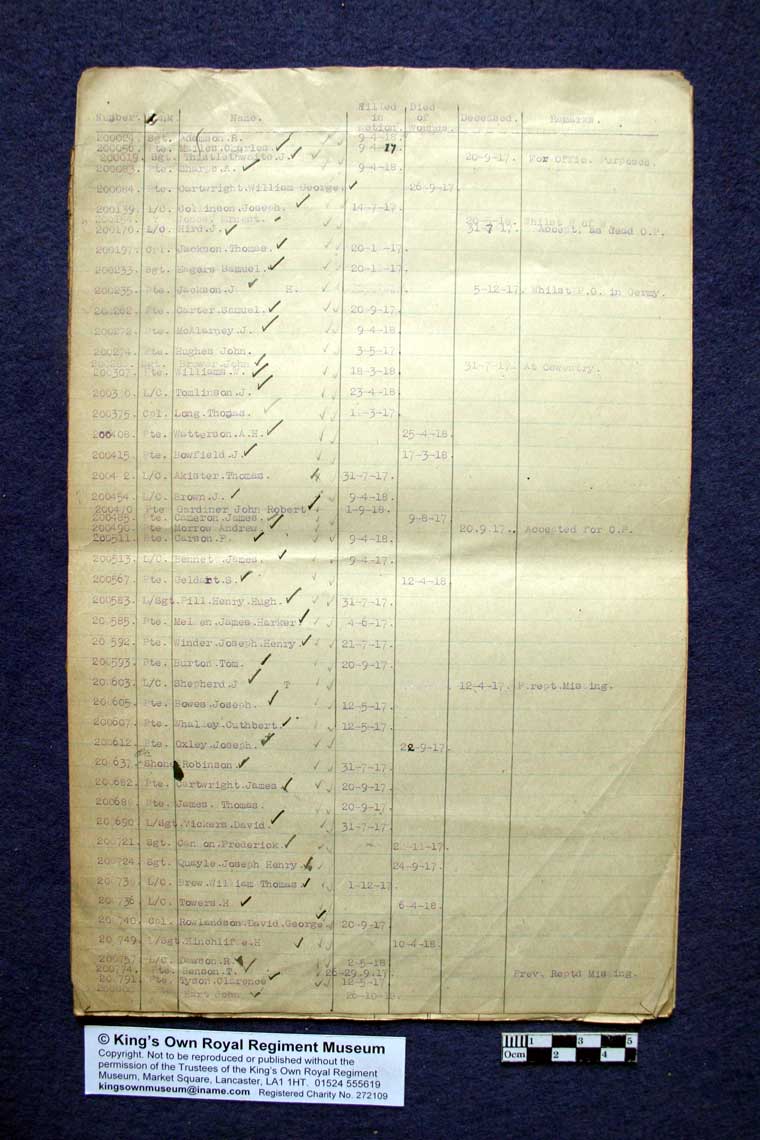 Number. Rank Name. Killed in action. Died of Wounds. Deceased. Remarks.
200024. Sgt. Adamson.R. 9-4-18.
200056. Pte. Mailes.Charles 9-4-17
200019. Sgt. Thistlethwaite.J. 20-9-17. For Offic. Purposes.
200083. Pte. Sharpe.A. 9-4-18.
200084. Pte. Cartwright.William George. 26-9-17.
200139. L/C. Collinson.Joseph. 14-7-17.
Ernest. Whilst P of W.
200170. L/C. Bird.J. 31-7-17. Accept. as dead O.P.
200197. Cpl. Jackson.Thomas. 17.
200233. Sgt. Eagers Samuel. 17.
200235. Pte. Jackson.J H. 5-12-17. Whilst P.O. in Germy.
200262. Pte. Carter.Samuel. 20-9-17.
200272. Pte. McAlarney.J. 9-4-18.
200274. Pte. Hughes John. 3-5-17.
Brewer.John 31-7-17. At Coventry.
200307. Pte. Williams.W. 18-3-18.
L/C. Tomlinson.J. 23-4-18.
200375. Cpl. Long.Thomas. -3-17.
200408. Pte. Watterson.A.H. 25-4-18.
200415. Pte. Bowfield.J. 17-3-18.
L/C. Akister.Thomas. 31-7-17.
200454. L/C. Brown.J. 9-4-18.
200470 Pte Gardiner John Robert 1-9-18.
200485. Pte. Cameron.James. 9-8-17.
200496. Pte Morrow Andrew 20.9.17. Accepted for O.P.
200511. Pte. Carson.P. 9-4-18.
200513. L/C. Bennet James. 9-4-17.
200567. Pte. Geldart.S. 12-4-18.
200583. L/Sgt.Pill.Henry.Hugh. 31-7-17.
585. Pte. Mellen James.Harker 4-6-17.
592. Pte. Winder.Joseph.Henry. 21-7-17.
200593. Pte. Burton.Tom. 20-9-17.
200603. L/C. Shepherd.J T 12-4-17. P.rept.Missing.
605. Pte. Bowes.Joseph. 12-5-17.
200607. Pte. Whalley.Cuthbert. 12-5-17.
200612. Pte. Oxley.Joseph. 22-9-17.
637. Robinson. 31-7-17.
200682. Pte. Cartwright.James 20-9-17.
Pte. James. Thomas. 20-9-17.
690. L/Sgt.Vickers.David. 31-7-17.
721. Sgt. Cannon.Frederick. -11-17.
724. Sgt. Quayle.Joseph Henry. 24-9-17.
L/C. Brew.William Thomas. 1-12-17.
736. L/C. Towers.H 6-4-18.
740. Cpl. Rowlandson.David.George 20-9-17.
749. L/Sgt.Hinchliffe.H 10-4-18.
200757. L/C. Dawson.R. 2-5-18.
200774. Pte. Benson.T. 26-29.9.17. Prev. Reptd Missing.
791. Pte. Tyson.Clarence 12-5-17.
Hart John -10-18.
© King's Own Royal Regiment Museum
Copyright. Not to be reproduced or published without the
permission of the Trustees of the King's Own Royal Regiment
Museum, Market Square, Lancaster, LA1 1HT. 01524 555619
kingsownmuseum@iname.com Registered Charity No. 272109
1 3 5
0cm 2 4